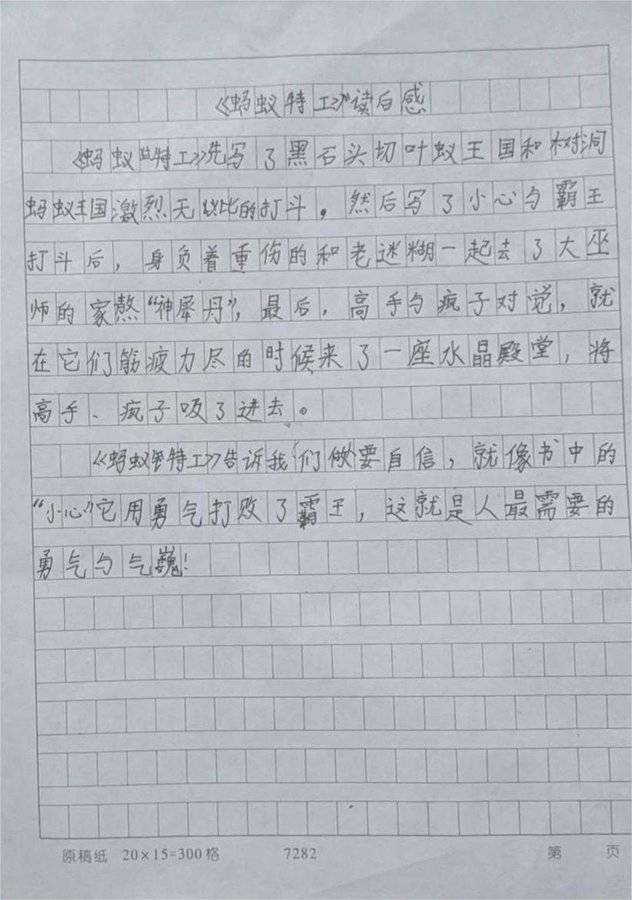 《蚂蚁特工》读后感
《蚂蚁特工》先写了黑石头切叶蚁王国和树洞
蚂蚁王国激烈无以比的打斗，然后写了小心与霸王
打斗后，身负着重伤的和老迷糊一起去了大巫
师的家熬“神犀丹”，最后，高手与疯子对觉，就
在它们筋疲力尽的时候来了一座水晶殿堂，将
高手、疯子吸了进去。
《蚂蚁特工》告诉我们做要自信，就像书中的
“小心”它用勇气打败了霸王，这就是人最需要的
勇气与气巍！
原稿纸 20×15=300格 7282 第 页